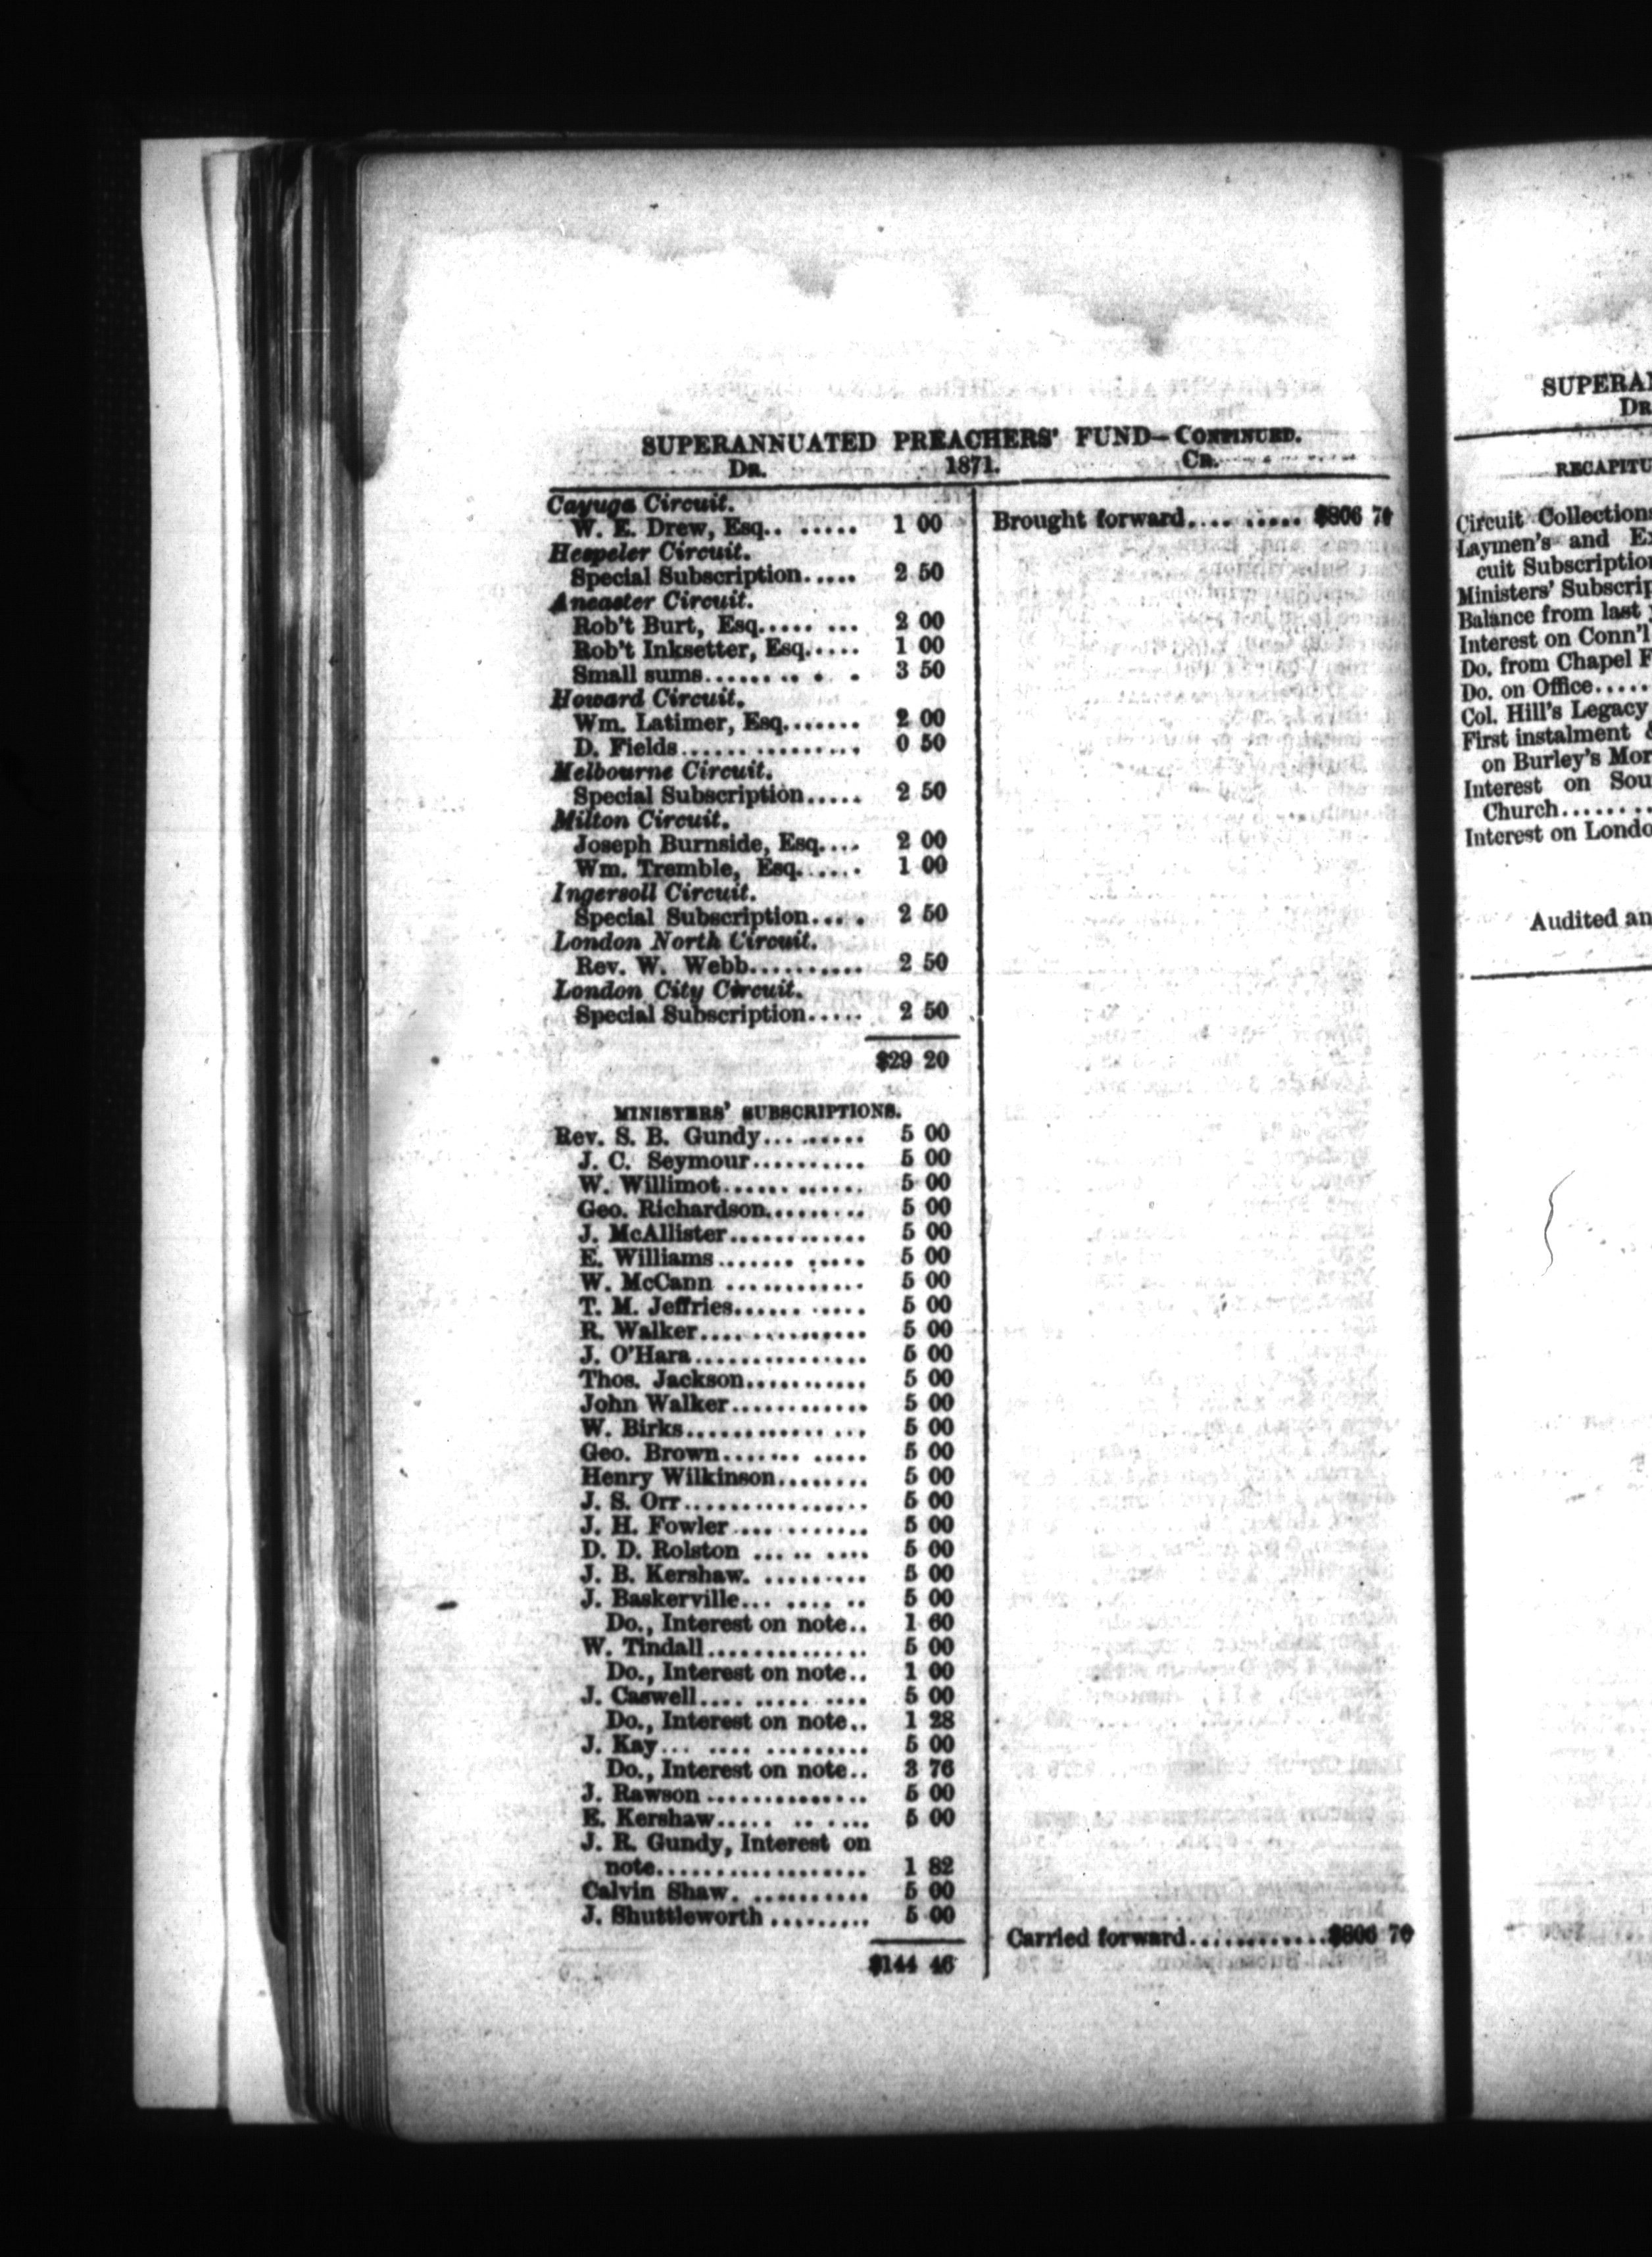 SUPERANNUATED PREACHERS' FUND—CONTINUED.
DR. 1871. CR.
Cayuga Circuit.
W. E. Drew, Esq.. ...... 1 00
Hespeler Circuit.
Special Subscription..... 2 50
Ancaster Circuit.
Rob't Burt, Esq..... ... 2 00
Rob't Inksetter, Esq..... 1 00
Small sums....... .. . . 3 50
Howard Circuit.
Wm. Latimer, Esq....... 2 00
D. Fields................ 0 50
Melbourne Circuit.
Special Subscription..... 2 50
Milton Circuit.
Joseph Burnside, Esq.... 2 00
Wm. Tremble, Esq...... 1 00
Ingersoll Circuit.
Special Subscription.... 2 50
London North Circuit.
Rev. W. Webb.......... 2 50
London City Circuit.
Special Subscription..... 2 50
$29 20
MINISTERS' SUBSCRIPTIONS.
Rev. S. B. Gundy......... 5 00
J. C. Seymour.......... 5 00
W. Willimot............ 5 00
Geo. Richardson......... 5 00
J. McAllister............ 5 00
E. Williams....... ..... 5 00
W. McCann ............ 5 00
T. M. Jeffries...... ..... 5 00
R. Walker............... 5 00
J. O'Hara............... 5 00
Thos. Jackson........... 5 00
John Walker............ 5 00
W. Birks............. ... 5 00
Geo. Brown....... ..... 5 00
Henry Wilkinson........ 5 00
J. S. Orr................ 5 00
J. H. Fowler.... ....... 5 00
D. D. Rolston ... .. .... 5 00
J. B. Kershaw. ......... 5 00
J. Baskerville... .... .. 5 00
Do., Interest on note.. 1 60
W. Tindall.............. 5 00
Do., Interest on note.. 1 00
J. Caswell.... ..... .... 5 00
Do., Interest on note.. 1 28
J. Kay... .... ......... 5 00
Do., Interest on note.. 3 76
J. Rawson .............. 5 00
E. Kershaw..... .. .... 5 00
J. R. Gundy, Interest on
note.................. 1 82
Calvin Shaw. .......... 5 00
J. Shuttleworth ......... 5 00
$144 46
Brought forward.... ..... $806 70
Carried forward............$806 70
SUPERA
DR
RECAPITU
Circuit Collections
Laymen's and Ex
cuit Subscription
Ministers' Subscrip
Balance from last
Interest on Conn'l
Do. from Chapel F
Do. on Office.....
Col. Hill's Legacy
First instalment &
on Burley's Mor
Interest on Sou
Church........
Interest on Londo
Audited an